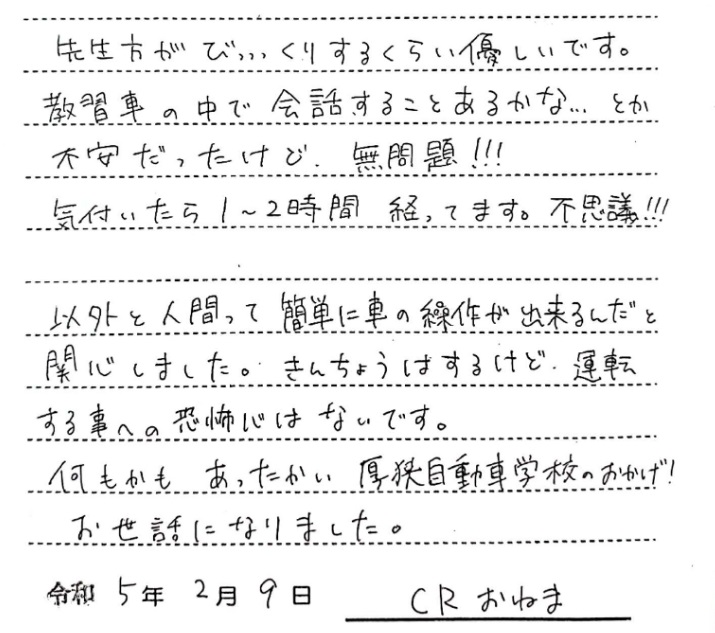 先生方がびっっっくりするくらい優しいです。
教習車の中で会話することあるかな…とか
不安だったけど、無問題!!!
気付いたら1～2時間 経ってます。不思議!!!
以外と人間って簡単に車の操作が出来るんだと
関心しました。きんちょうはするけど、運転
する事への恐怖心はないです。
何もかも あったかい 厚狭自動車学校のおかげ!
お世話になりました。
令和 5年 2月 9日 CRおねま